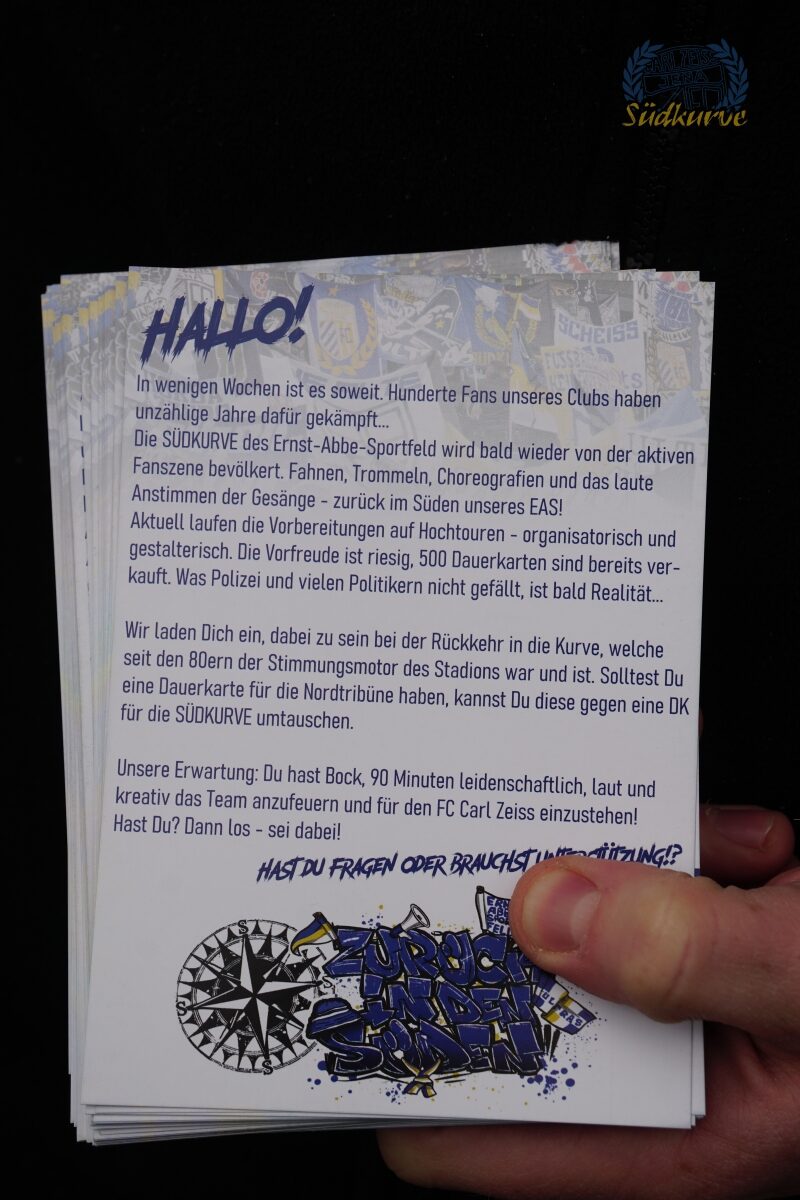 CARL ZEISS
JENA
Südkurve
HALLO!
SCHEISS
In wenigen Wochen ist es soweit. Hunderte Fans unseres Clubs haben
unzählige Jahre dafür gekämpft...
Die SÜDKURVE des Ernst-Abbe-Sportfeld wird bald wieder von der aktiven
Fanszene bevölkert. Fahnen, Trommeln, Choreografien und das laute
Anstimmen der Gesänge - zurück im Süden unseres EAS!
Aktuell laufen die Vorbereitungen auf Hochtouren - organisatorisch und
gestalterisch. Die Vorfreude ist riesig, 500 Dauerkarten sind bereits ver-
kauft. Was Polizei und vielen Politikern nicht gefällt, ist bald Realität...
Wir laden Dich ein, dabei zu sein bei der Rückkehr in die Kurve, welche
seit den 80ern der Stimmungsmotor des Stadions war und ist. Solltest Du
eine Dauerkarte für die Nordtribüne haben, kannst Du diese gegen eine DK
für die SÜDKURVE umtauschen.
Unsere Erwartung: Du hast Bock, 90 Minuten leidenschaftlich, laut und
kreativ das Team anzufeuern und für den FC Carl Zeiss einzustehen!
Hast Du? Dann los - sei dabei!
HAST DU FRAGEN ODER BRAUCHST UNTERSTÜTZUNG!?
S
S S
S
ZURÜCK
IN DEN
SÜDEN